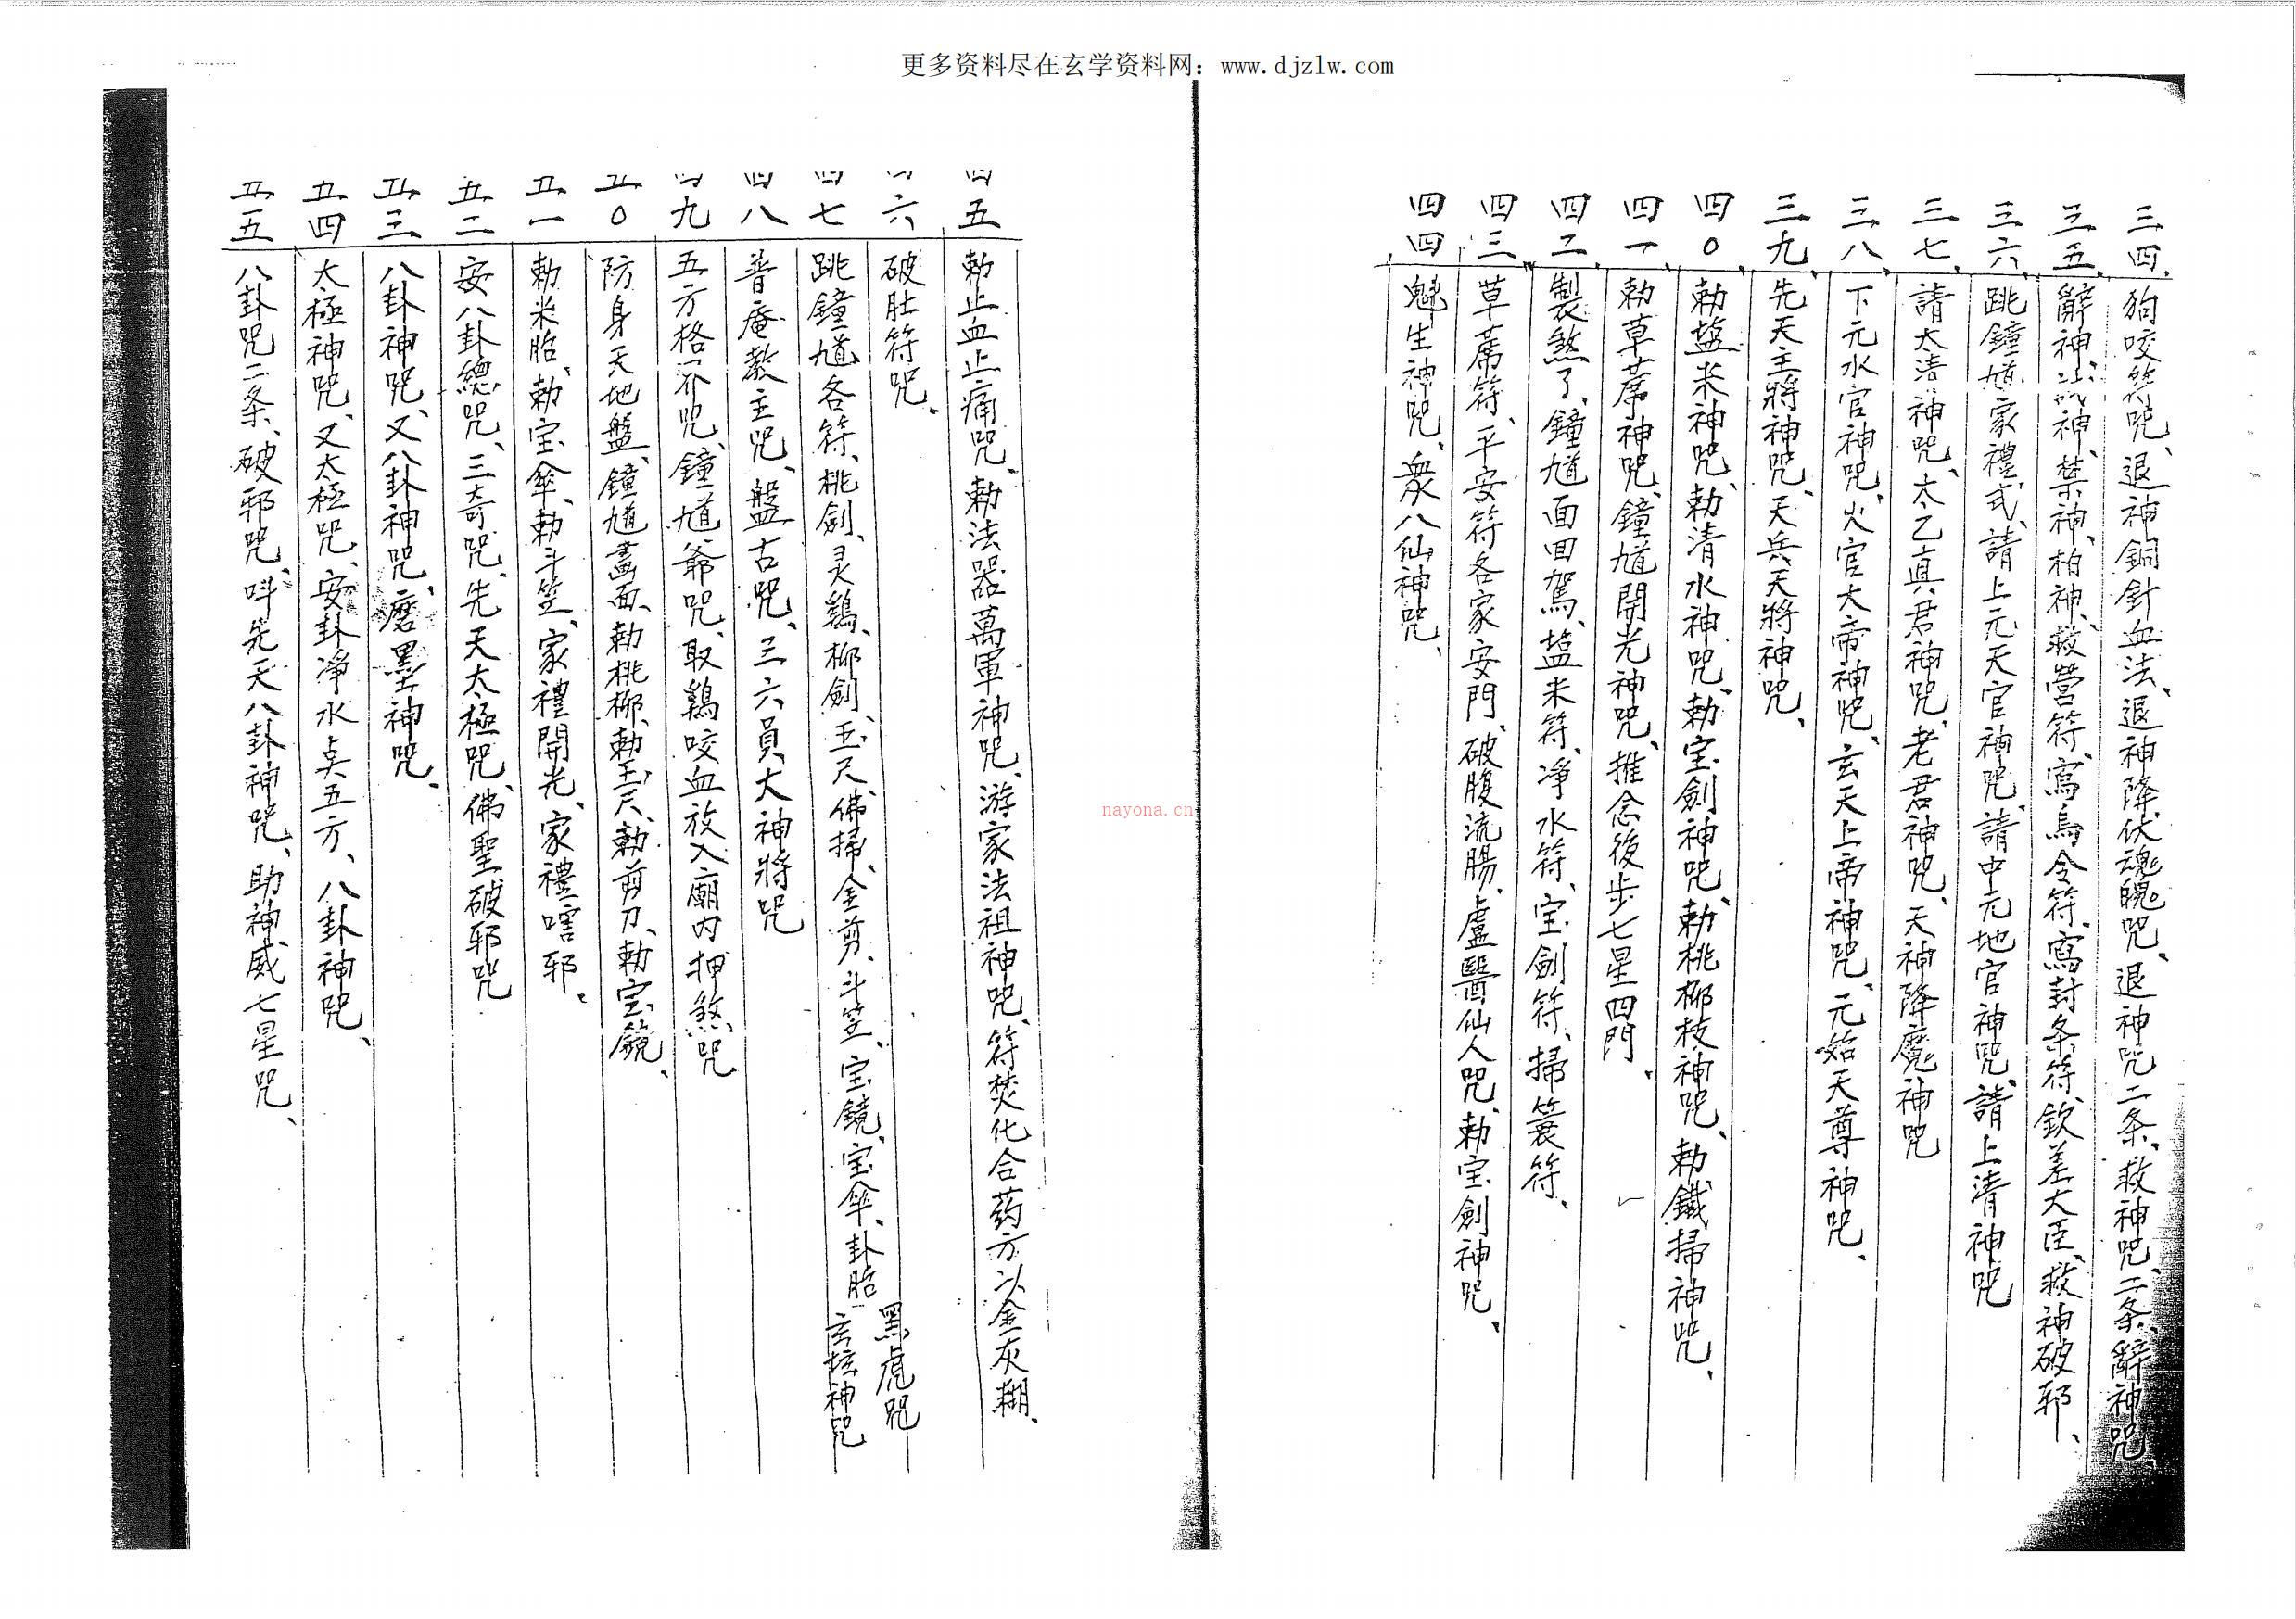 更多资料尽在玄学资料网：www.djzlw.com
三四、狗咬符咒、退神銅針血法、退神降伏魂魄咒、退神咒二条、救神咒二条、辭神咒、
三五、辭神、神、禁神、柏神、救营符、寫烏令符、寫封条符、欽差大臣、救神破邪、
三六、跳鐘馗家禮式、請上元天官神咒、請中元地官神咒、請上清神咒
三七、請太清神咒、太乙真君神咒、老君神咒、天神降魔神咒
三八、下元水官神咒、火官大帝神咒、玄天上帝神咒、元始天尊神咒、
三九、先天主將神咒、天兵天將神咒、
四0、勅盐米神咒、勅清水神咒、勅宝劍神咒、勅桃柳枝神咒、勅鐵掃神咒、
四一、勅草蓆神咒、鐘馗開光神咒、推念後步七星四門、
四二、製煞了、鐘馗面回駕、盐米符、凈水符、宝劍符、掃簑符、
四三、草蓆符、平安符各家安門、破腹流腸、盧醫仙人咒、勅宝劍神咒、
四四、魁生神咒、衆八仙神咒、
四五 勅止血止痛咒、勅法器萬軍神咒、游家法祖神咒、符焚化合药方以金灰糊、
四六 破肚符咒、 黑虎咒
四七 跳鐘馗各符、桃劍、灵鷄、柳劍、玉尺、佛掃、金剪、斗笠、宝鏡、宝傘、卦胎 玄坛神咒
四八 普庵教主咒、盤古咒、三六員大神將咒
四九 五方格界咒、鐘馗爺咒、取鷄咬血放入廟内押煞咒
五0 防身天地盤、鐘馗畵面、勅桃柳、勅玉尺、勅剪刀、勅宝鏡、
五一 勅米胎、勅宝傘、勅斗笠、家禮開光、家禮喀邪、
五二 安八卦總咒、三奇咒、先天太極咒、佛聖破邪咒
五三 八卦神咒、又八卦神咒、磨墨神咒、
五四 太極神咒、又太極咒、安卦凈水点五方、八卦神咒、
五五 八卦咒二条、破邪咒、叫先天八卦神咒、助神威七星咒、
nayona.cn